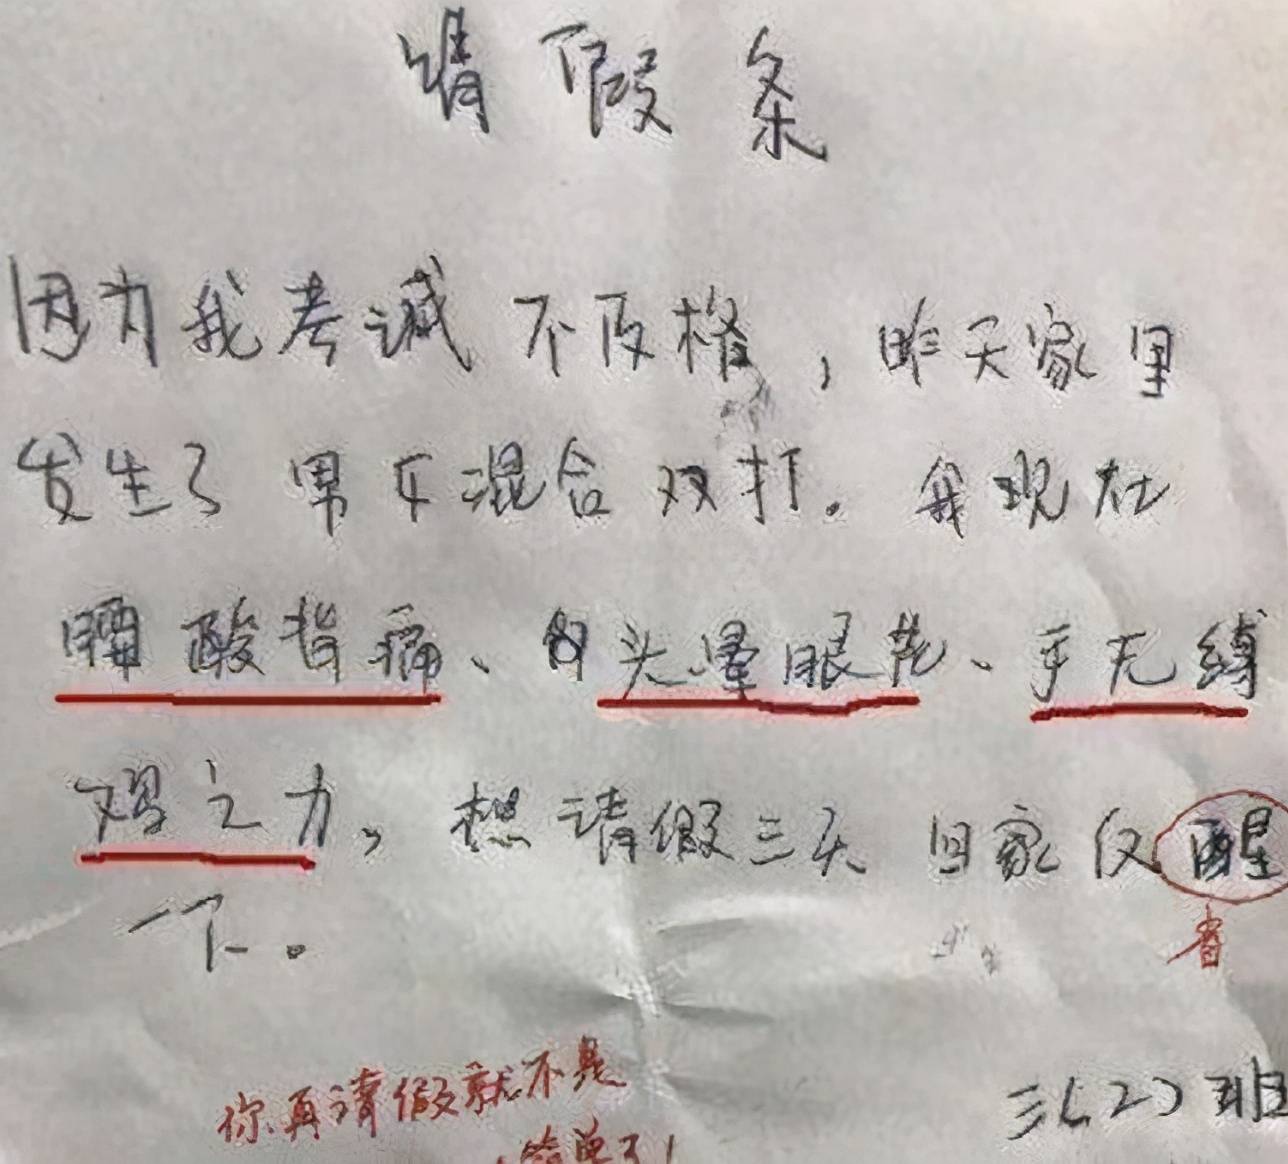 请假条
因为我考试不及格，昨天家里
发生了男女混合双打。我现在
腰酸背痛、头晕眼花、手无缚
鸡之力，想请假三天回家反醒
省
一下。
三(2)班
你再请假就不是
单了！